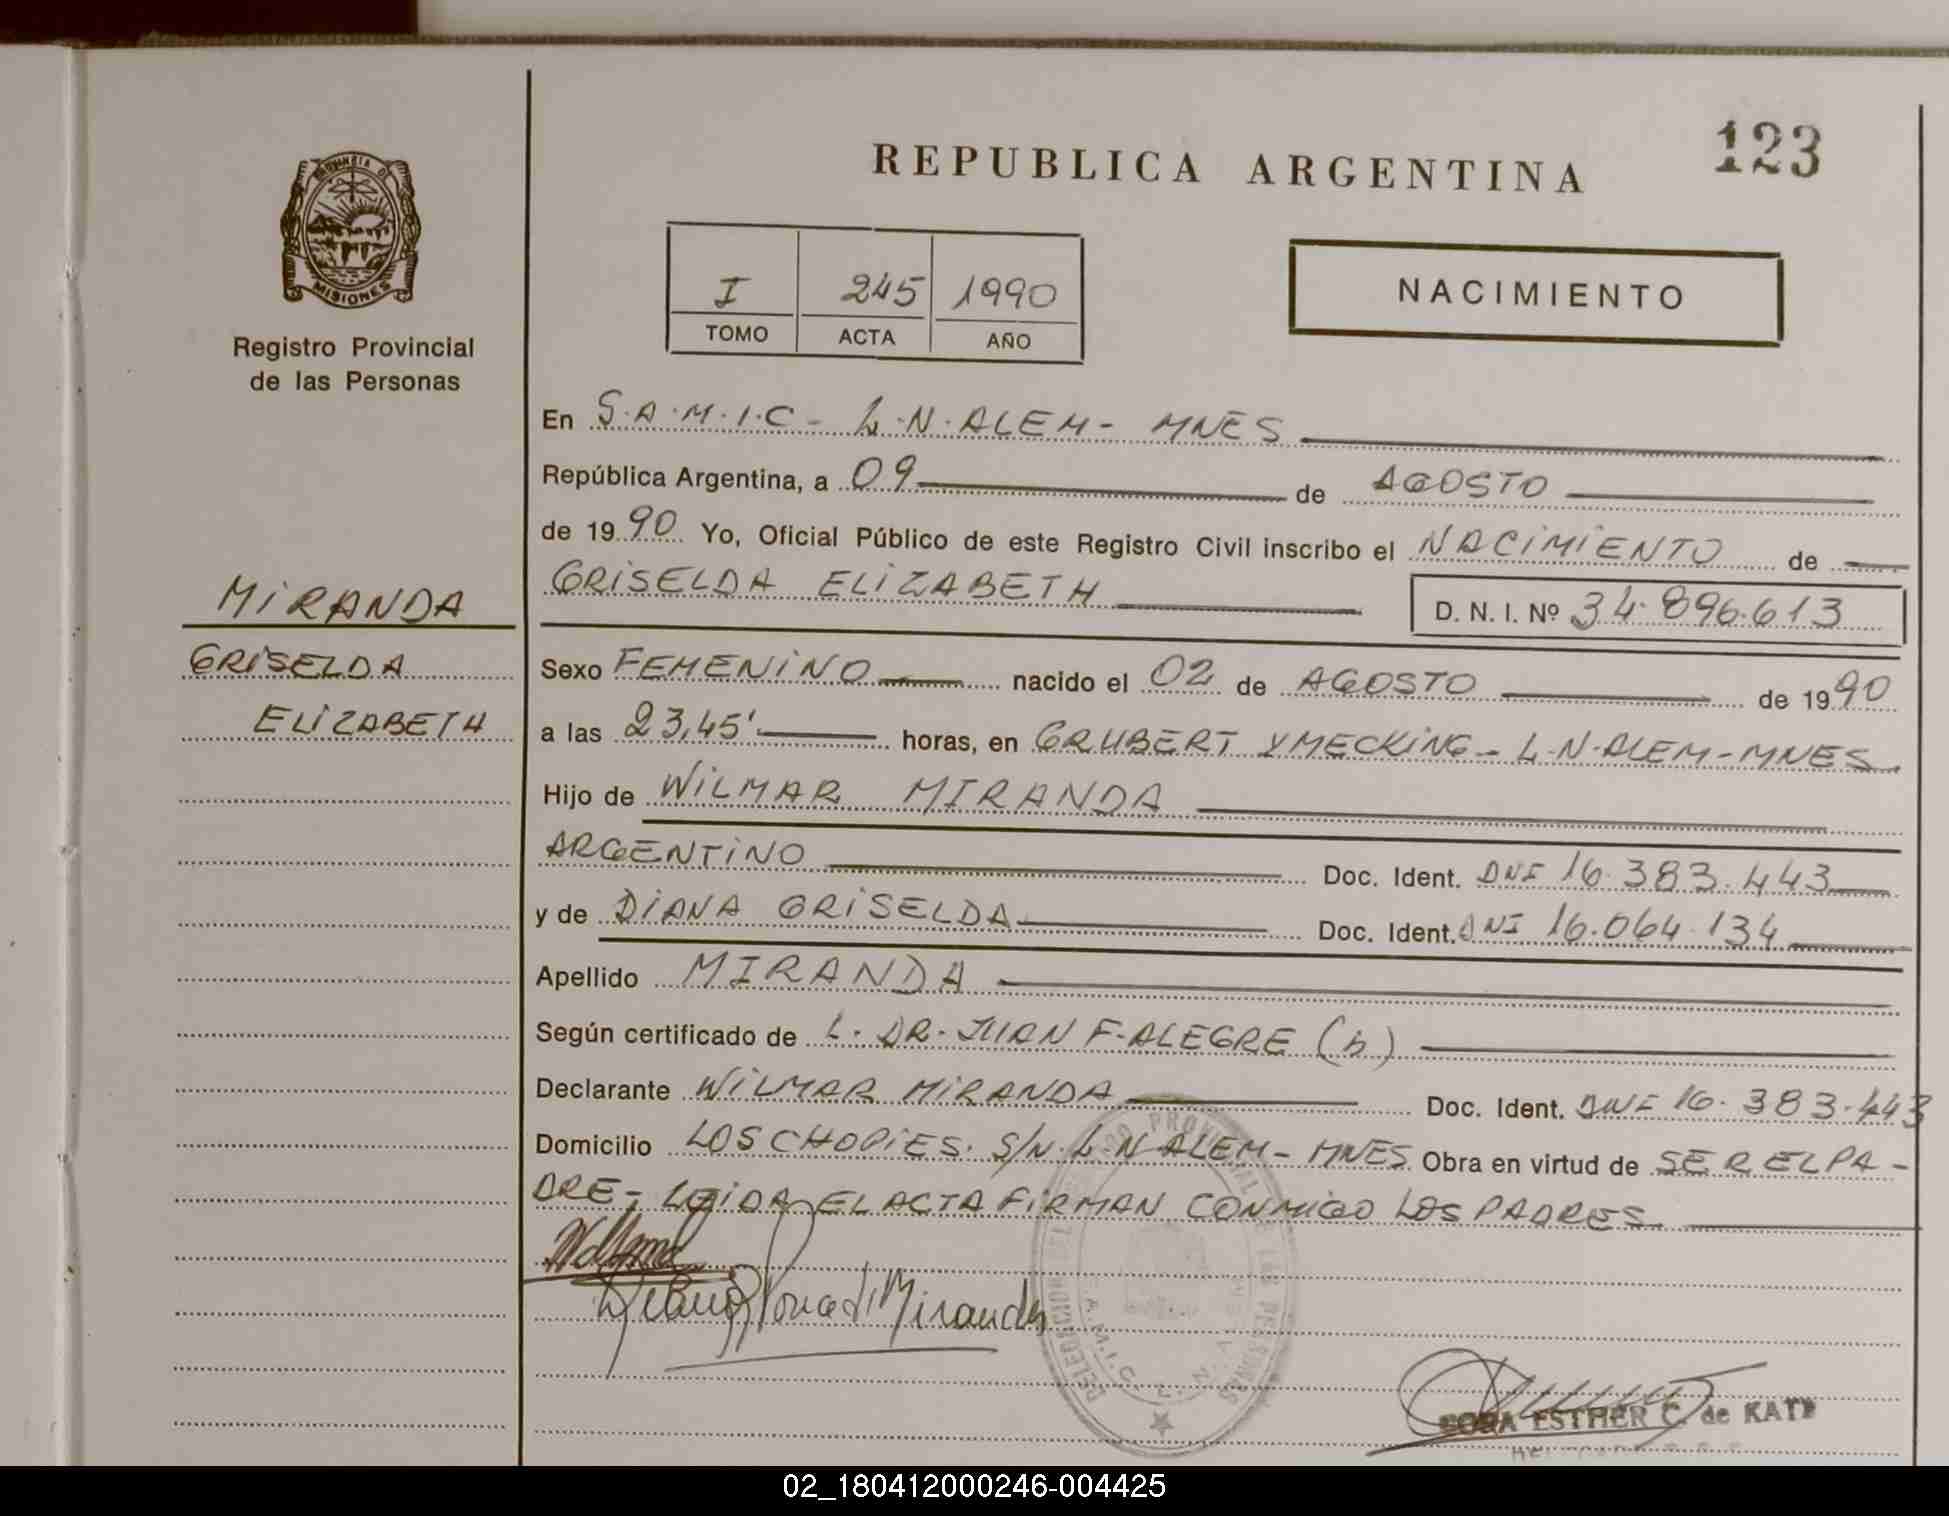 123
REPUBLICA ARGENTINA
MISIONES
Registro Provincial
de las Personas
I 245 1990
TOMO ACTA AÑO
NACIMIENTO
En S.A.M.I.C - L.N. ALEM - MNES
República Argentina, a 09 de AGOSTO
de 1990 Yo, Oficial Público de este Registro Civil inscribo el NACIMIENTO de
GRISELDA ELIZABETH D. N. I. Nº 34.896.613
MIRANDA
GRISELDA
ELIZABETH
Sexo FEMENINO nacido el 02 de AGOSTO de 1990
a las 23,45' horas, en GRUBERT Y MECKING - L.N. ALEM - MNES
Hijo de WILMAR MIRANDA
ARGENTINO Doc. Ident. DNI 16.383.443
y de DIANA GRISELDA Doc. Ident. DNI 16.064.134
Apellido MIRANDA
Según certificado de L. DR. JUAN F. ALEGRE (h)
Declarante WILMAR MIRANDA Doc. Ident. DNI 16.383.443
Domicilio LOS CHOPIES. S/N. L.N ALEM - MNES Obra en virtud de SER EL PA-
DRE - LEIDA EL ACTA FIRMAN CONMIGO LOS PADRES
Miranda
ESTHER C. de KATZ
02_180412000246-004425